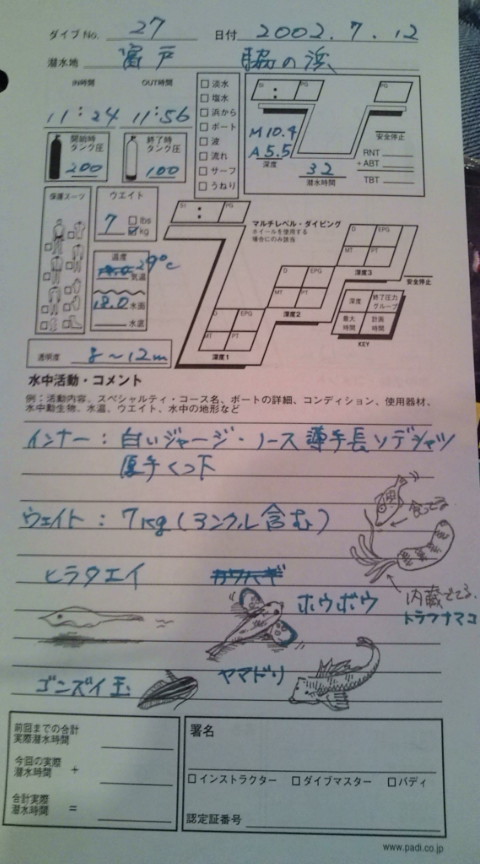 ダイブNo. 27 日付 2002.7.12
潜水地 富戸 脇の浜
IN時間 OUT時間
11:24 11:56
開始時タンク圧 200
終了時タンク圧 100
淡水
塩水
浜から
ボート
波
流れ
サーフ
うねり
SI PG PG
M 10.4
A 5.5
深度
32
潜水時間
安全停止
RNT
+ ABT
TBT
保護スーツ
ウエイト
7 lbs kg
温度
29℃ 気温
18.0 水面
水底
透明度 8〜12m
SI PG
マルチレベル・ダイビング
ホイールを使用する
場合にのみ該当
D EPG
MT PT
深度1
D EPG
MT PT
深度2
D EPG
MT PT
深度3
安全停止
深度 終了圧力グループ
最大時間 計画時間
KEY
水中活動・コメント
例：活動内容、スペシャルティ・コース名、ボートの詳細、コンディション、使用器材、
水中動生物、水温、ウエイト、水中の地形など
インナー：白いジャージ・ノース薄手長ソデシャツ
厚手くつ下
ウェイト：7kg(アンクル含む)
食ってる
ヒラタエイ カワハギ ホウボウ
内蔵でてる、
トラフナマコ
ゴンズイ玉 ヤマドリ
前回までの合計
実際潜水時間
今回の実際
潜水時間 +
合計実際
潜水時間 =
署名
インストラクター ダイブマスター バディ
認定証番号
www.padi.co.jp